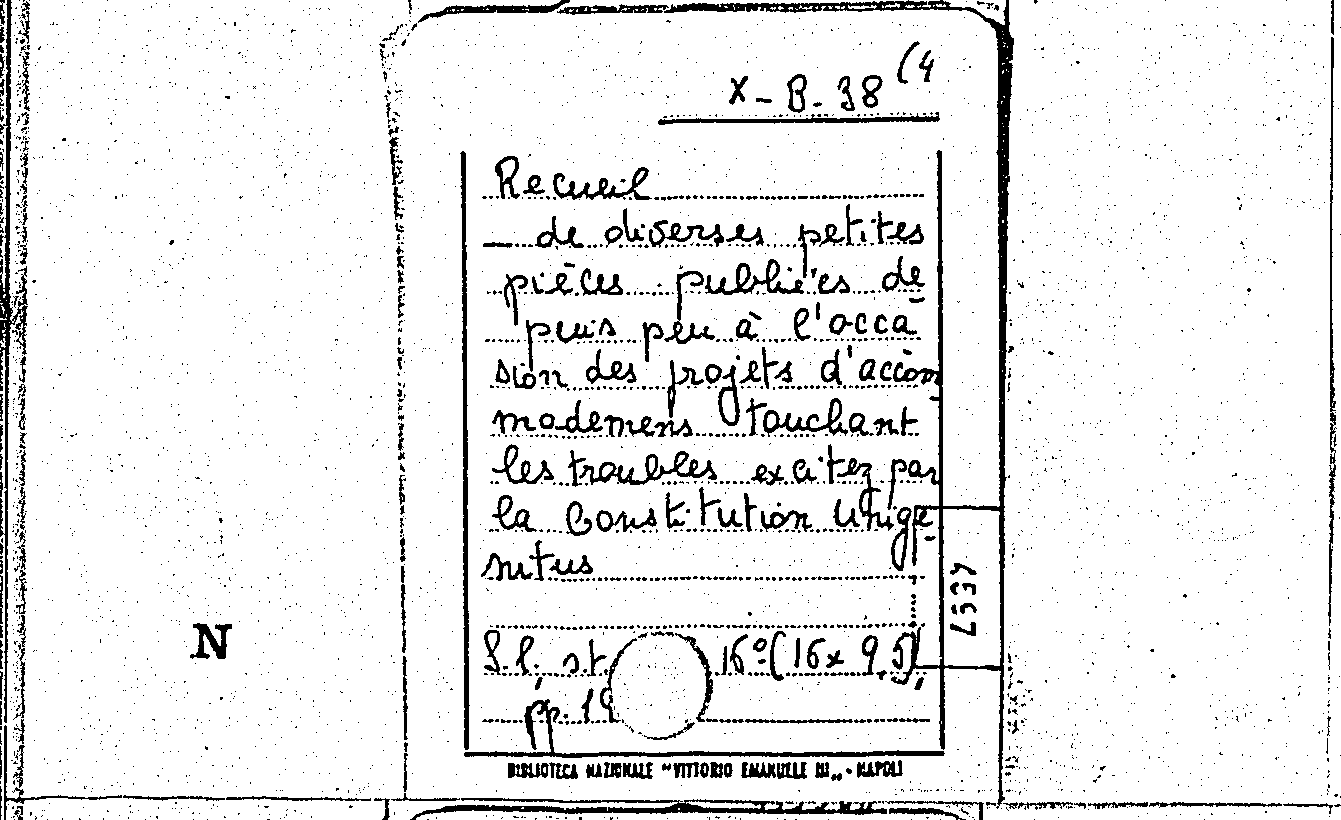 X-B-38 (4
Recueil
— de diverses petites
pièces publiées de-
puis peu à l'occa
sion des projets d'accom-
modemens touchant
les troubles excitez par
la Constitution Unige-
nitus
S.l., s.t. 16º (16x9,5),
pp. 19
4537
N
BIBLIOTECA NAZIONALE "VITTORIO EMANUELE III„ - NAPOLI